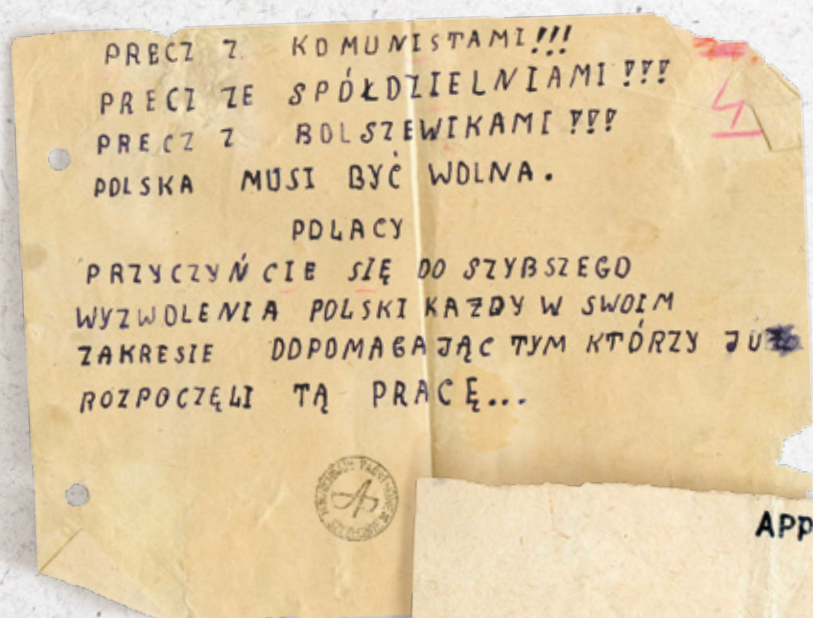 PRECZ Z KOMUNISTAMI!!!
PRECZ ZE SPÓŁDZIELNIAMI!!!
PRECZ Z BOLSZEWIKAMI!!!
POLSKA MUSI BYĆ WOLNA.
POLACY
PRZYCZYŃCIE SIĘ DO SZYBSZEGO
WYZWOLENIA POLSKI KAŻDY W SWOIM
ZAKRESIE DOPOMAGAJĄC TYM KTÓRZY
ROZPOCZĘLI TĄ PRACĘ...
APP